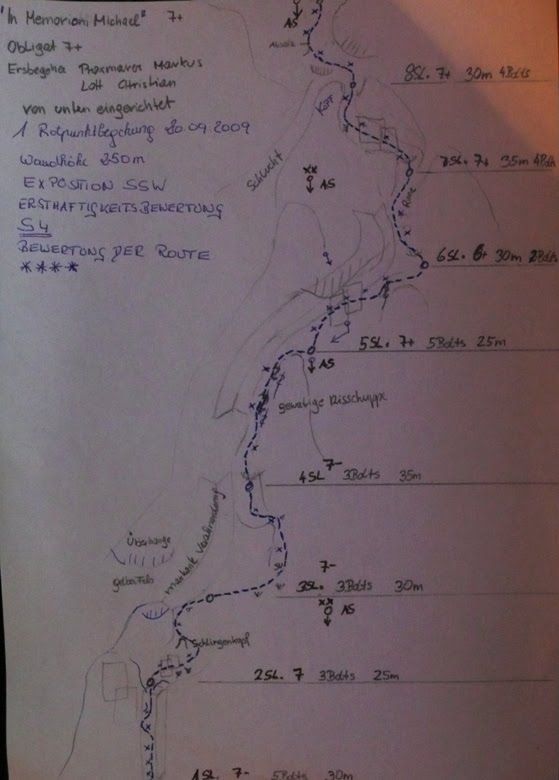 "In Memoriam Michael" 7+
Obligat 7+
Erstbegeher Markus
Lott Christian
von unten eingerichtet
1 Rotpunktbegehung 20.09.2009
Wandhöhe 250m
EXPOSITION SSW
ERSTHAFTIGKEITSBEWERTUNG
S4
BEWERTUNG DER ROUTE
****
AS
8SL. 7+ 30m 4Bolts
Kar
Schlucht
7SL. 7+ 35m 4Bolts
AS
Rinne
6SL. 6+ 30m 2Bolts
5SL. 7+ 5Bolts 25m
AS
gewaltige Risschuppe
4SL 7- 3Bolts 35m
Überhänge
gelber Fels
markante
7-
3SL. 3Bolts 30m
AS
Schlingenkopf
2SL. 7 3Bolts 25m
1SL. 7- 5Bolts 30m